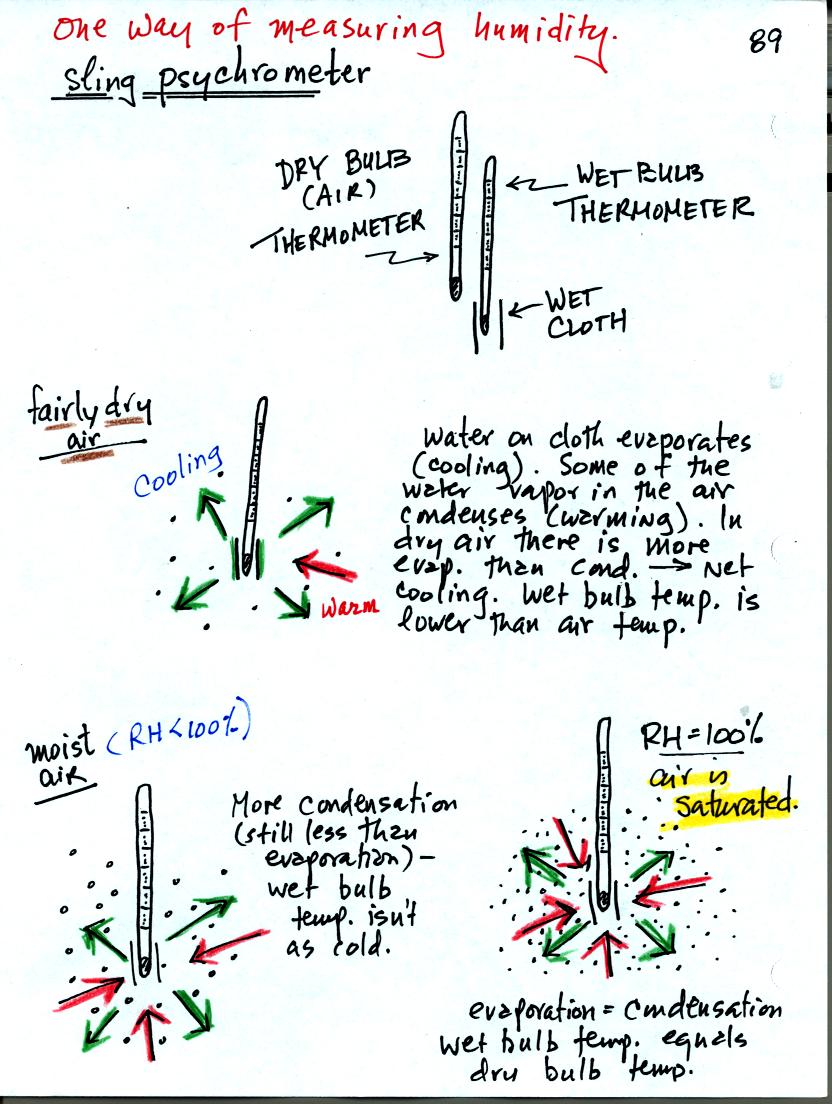 One way of measuring humidity.
89
sling psychrometer
DRY BULB
(AIR)
THERMOMETER
WET BULB
THERMOMETER
WET
CLOTH
fairly dry
air
Cooling
warm
Water on cloth evaporates
(cooling). Some of the
water vapor in the air
condenses (warming). In
dry air there is more
evap. than cond. → Net
cooling. Wet bulb temp. is
lower than air temp.
moist (RH<100%)
air
More condensation
(still less than
evaporation) –
wet bulb
temp. isn't
as cold.
RH = 100%
air is
saturated.
evaporation = condensation
wet bulb temp. equals
dry bulb temp.